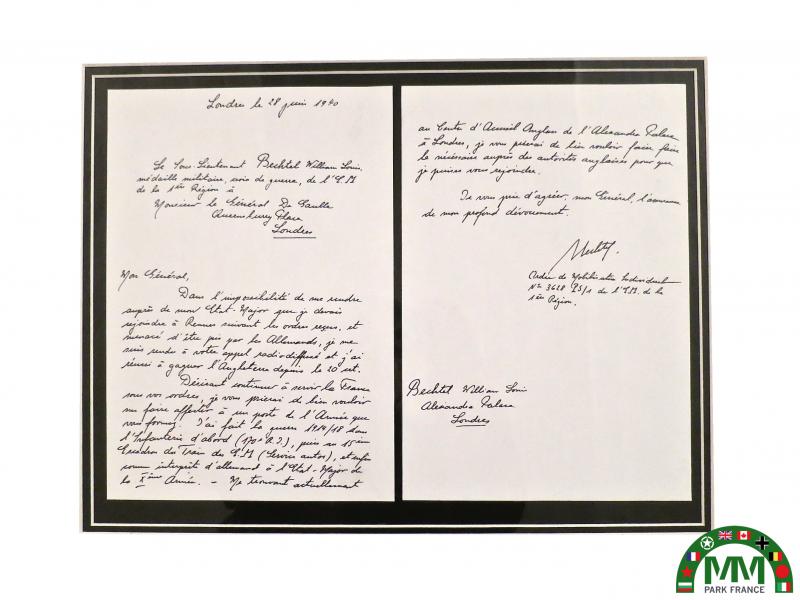 Londres le 28 juin 1940
Le Sous-Lieutenant Bechtel William Louis,
médaille militaire, croix de guerre, de l'E.M
de la 1ère Région à
Monsieur le Général De Gaulle
Queensburry Place
Londres
Mon Général,
Dans l'impossibilité de me rendre
auprès de mon Etat-Major que je devais
rejoindre à Rennes suivant les ordres reçus, et
menacé d'être pris par les Allemands, je me
suis rendu à votre appel radiodiffusé et j'ai
réussi à gagner l'Angleterre depuis le 20 crt.
Désirant continuer à servir la France
sous vos ordres, je vous prierai de bien vouloir
me faire affecter à un poste de l'Armée que
vous formez. J'ai fait la guerre 1914/18 dans
l'Infanterie d'abord (170e R.I), puis au 15ème
Escadron du Train des E.M (Service autos), et enfin
comme interprète d'allemand à l'Etat-Major de
la Xème Armée. - Me trouvant actuellement
au Center d'Accueil Anglais de l'Alexandra Palace
à Londres, je vous prierai de bien vouloir faire faire
le nécessaire auprès des autorités anglaises pour que
je puisse vous rejoindre.
Je vous prie d'agréer, mon Général, l'assurance
de mon profond dévouement.
Ordre de Mobilisation Individuel
No 3628 /1 de l'E.M. de la
1ère Région.
Bechtel William Louis
Alexandra Palace
Londres
MM
PARK FRANCE